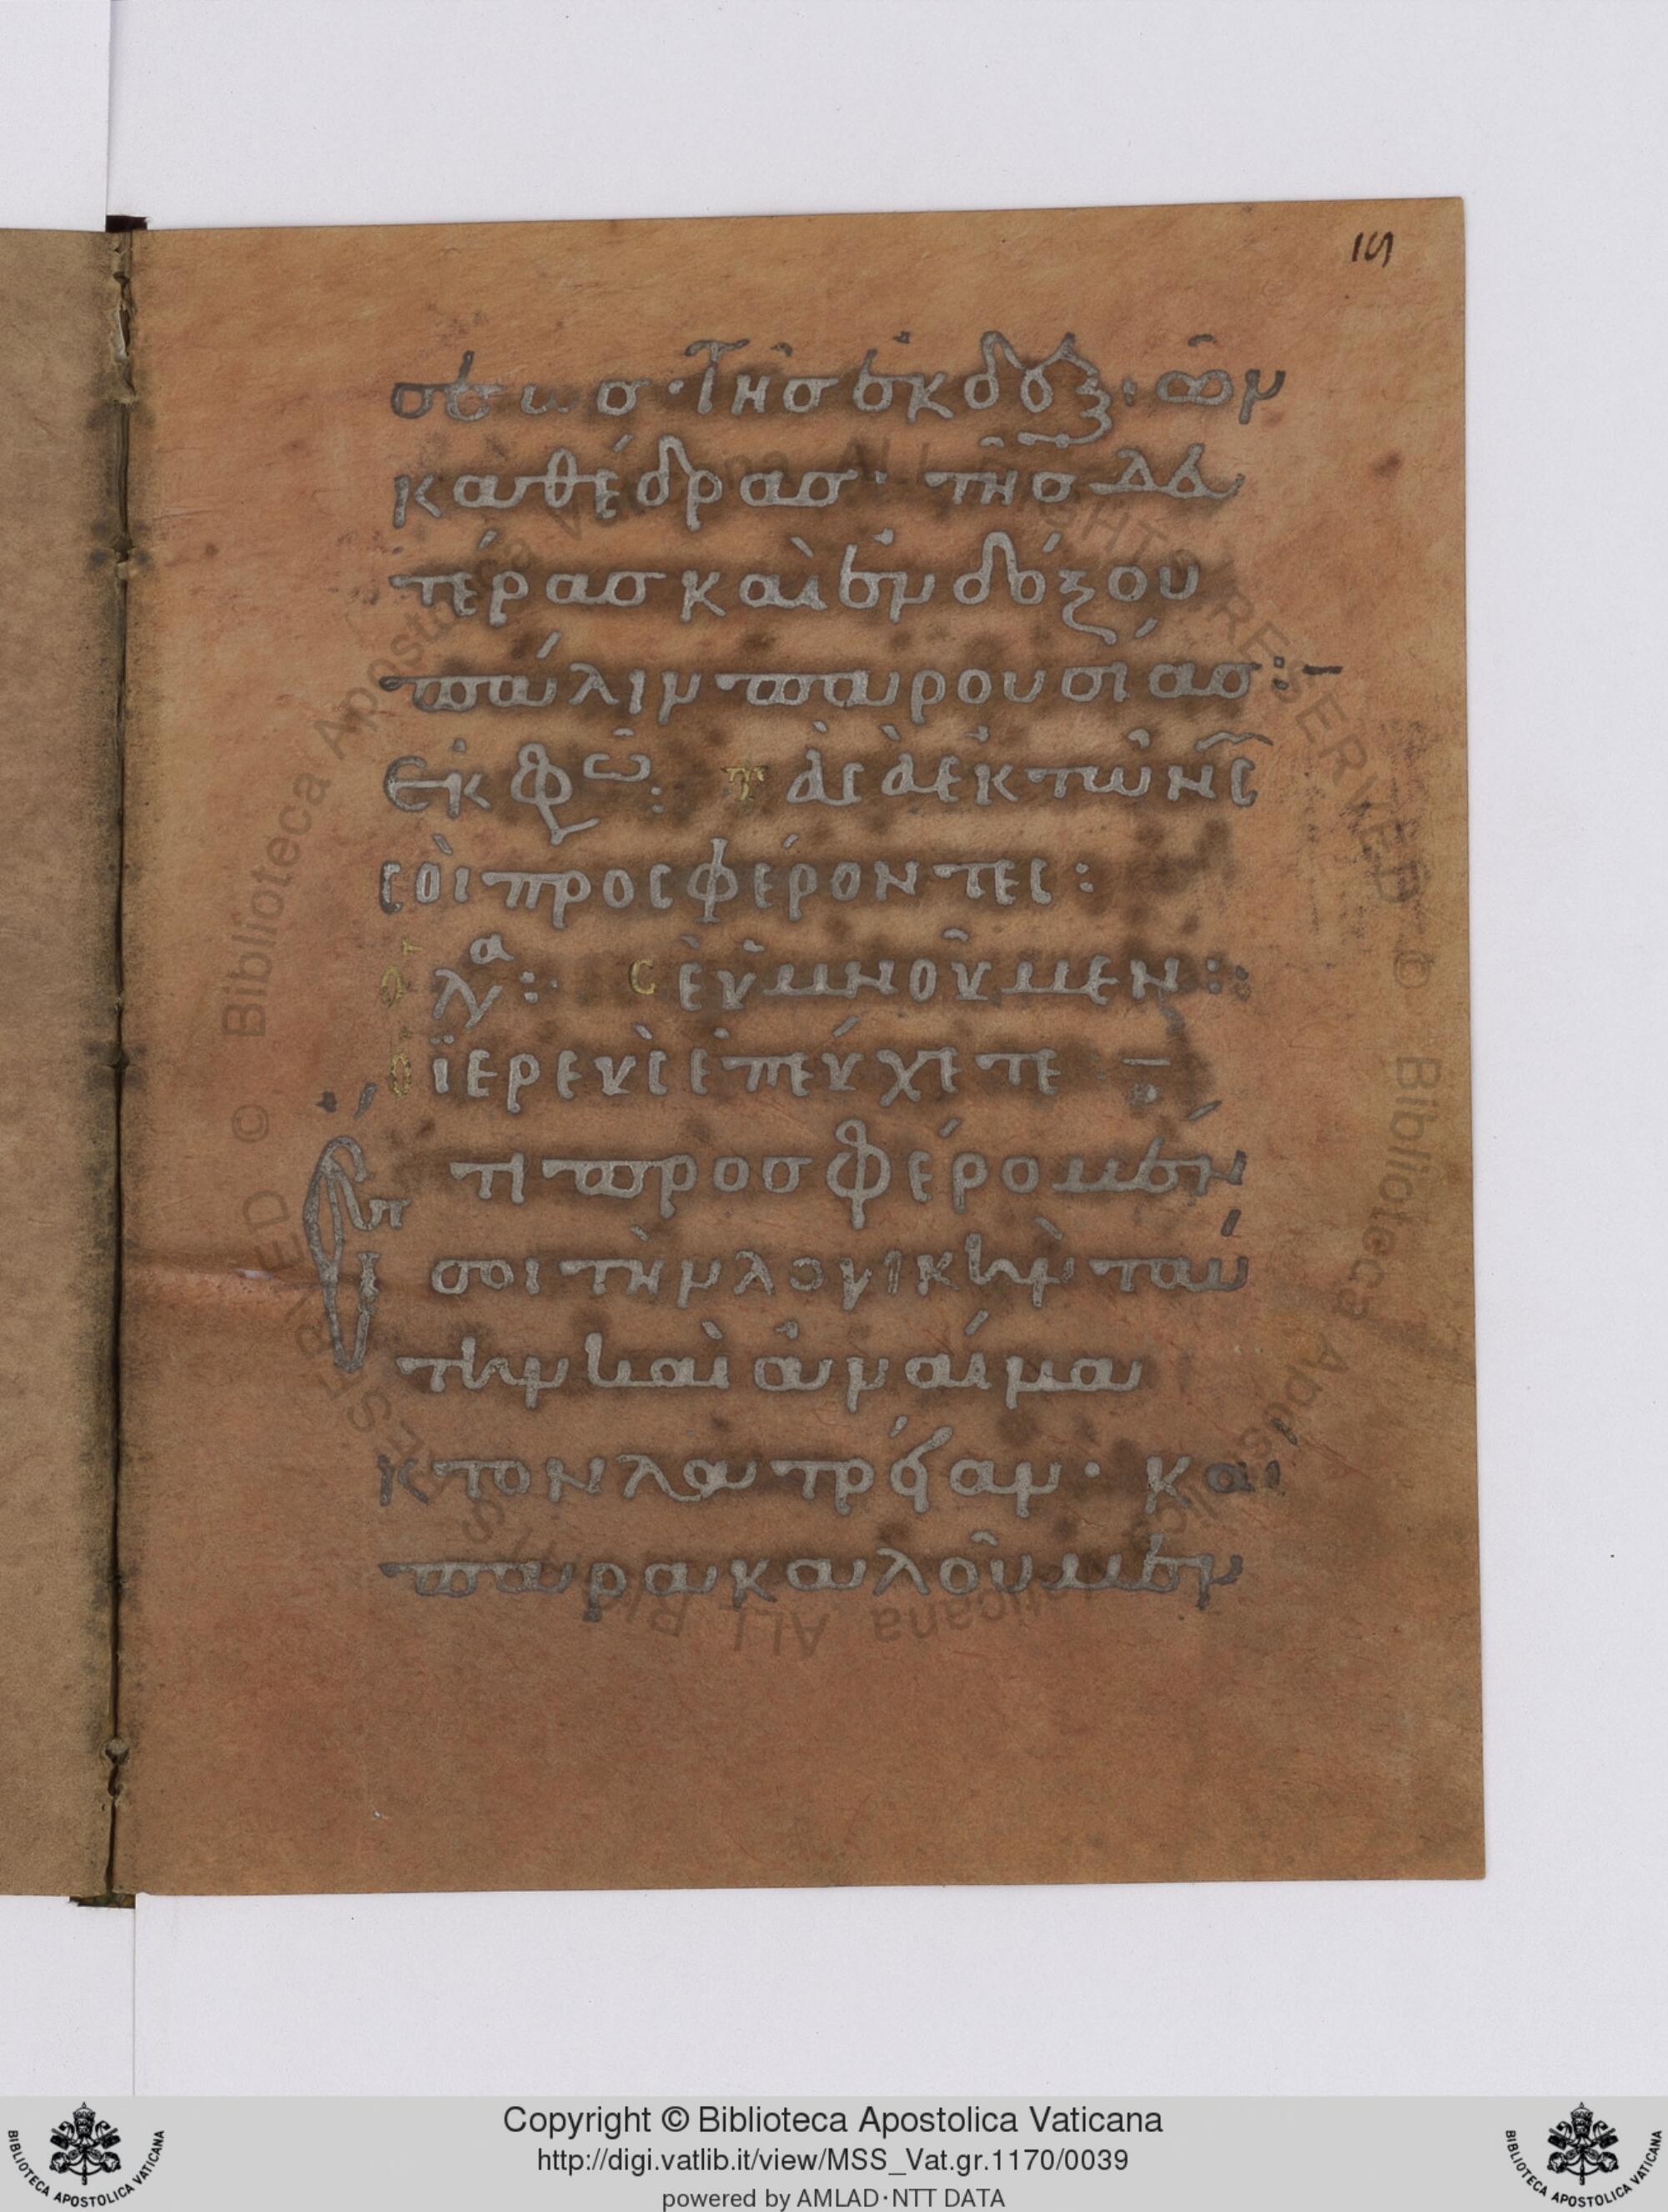 ις
σεως· τῆς ἐκ δεξιῶν
καθέδρας· τῆς δευ
τέρας καὶ ἐνδόξου
πάλιν παρουσίας:-
Ἐκφω: τὰ σὰ ἐκ τῶν σ
σοὶ προσφέροντες:
ὁ λα: Σὲ ὑμνοῦμεν:
ὁ ἱερεὺς ἐπεύχεται
Ἔτι προσφέρομέν
σοι τὴν λογικὴν ταύ
την καὶ ἀναίμα
κτον λατρείαν· καὶ
παρακαλοῦμεν
Copyright © Biblioteca Apostolica Vaticana
http://digi.vatlib.it/view/MSS_Vat.gr.1170/0039
powered by AMLAD·NTT DATA
BIBLIOTECA APOSTOLICA VATICANA
BIBLIOTECA APOSTOLICA VATICANA